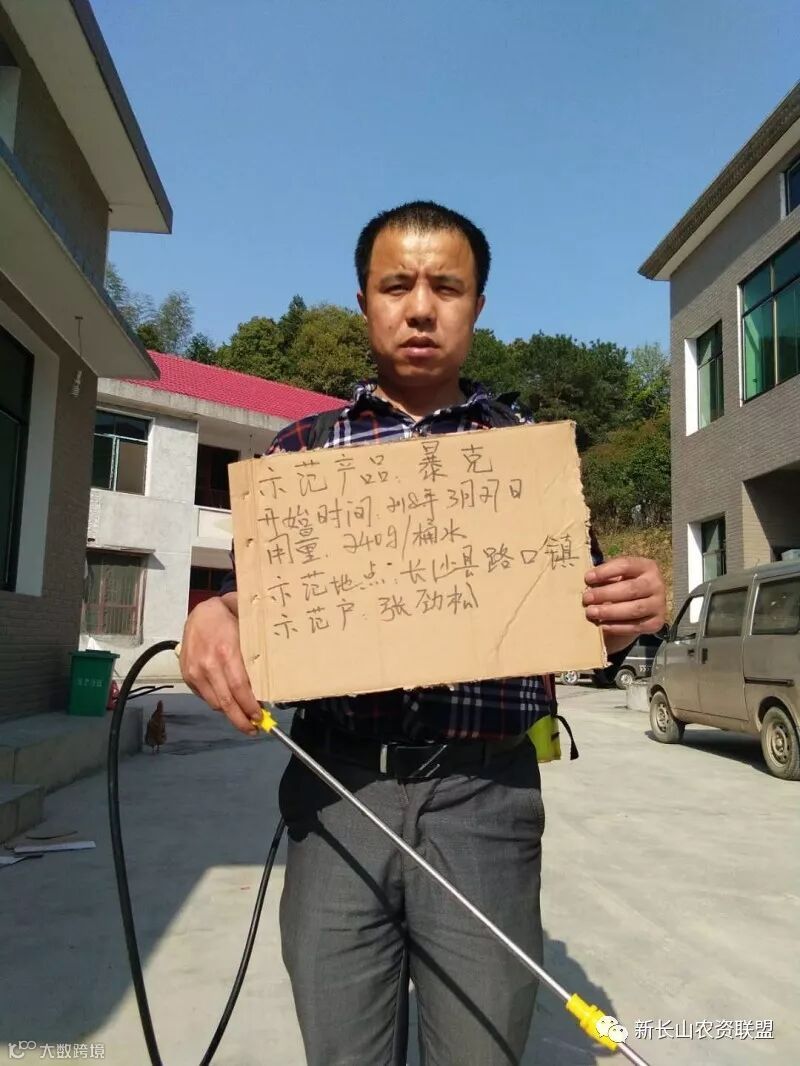 示范产品:暴克
开始时间:2018年3月27日
用量:240g/桶水
示范地点:长沙县路口镇
示范户:张劲松
新长山农资联盟
大数跨境